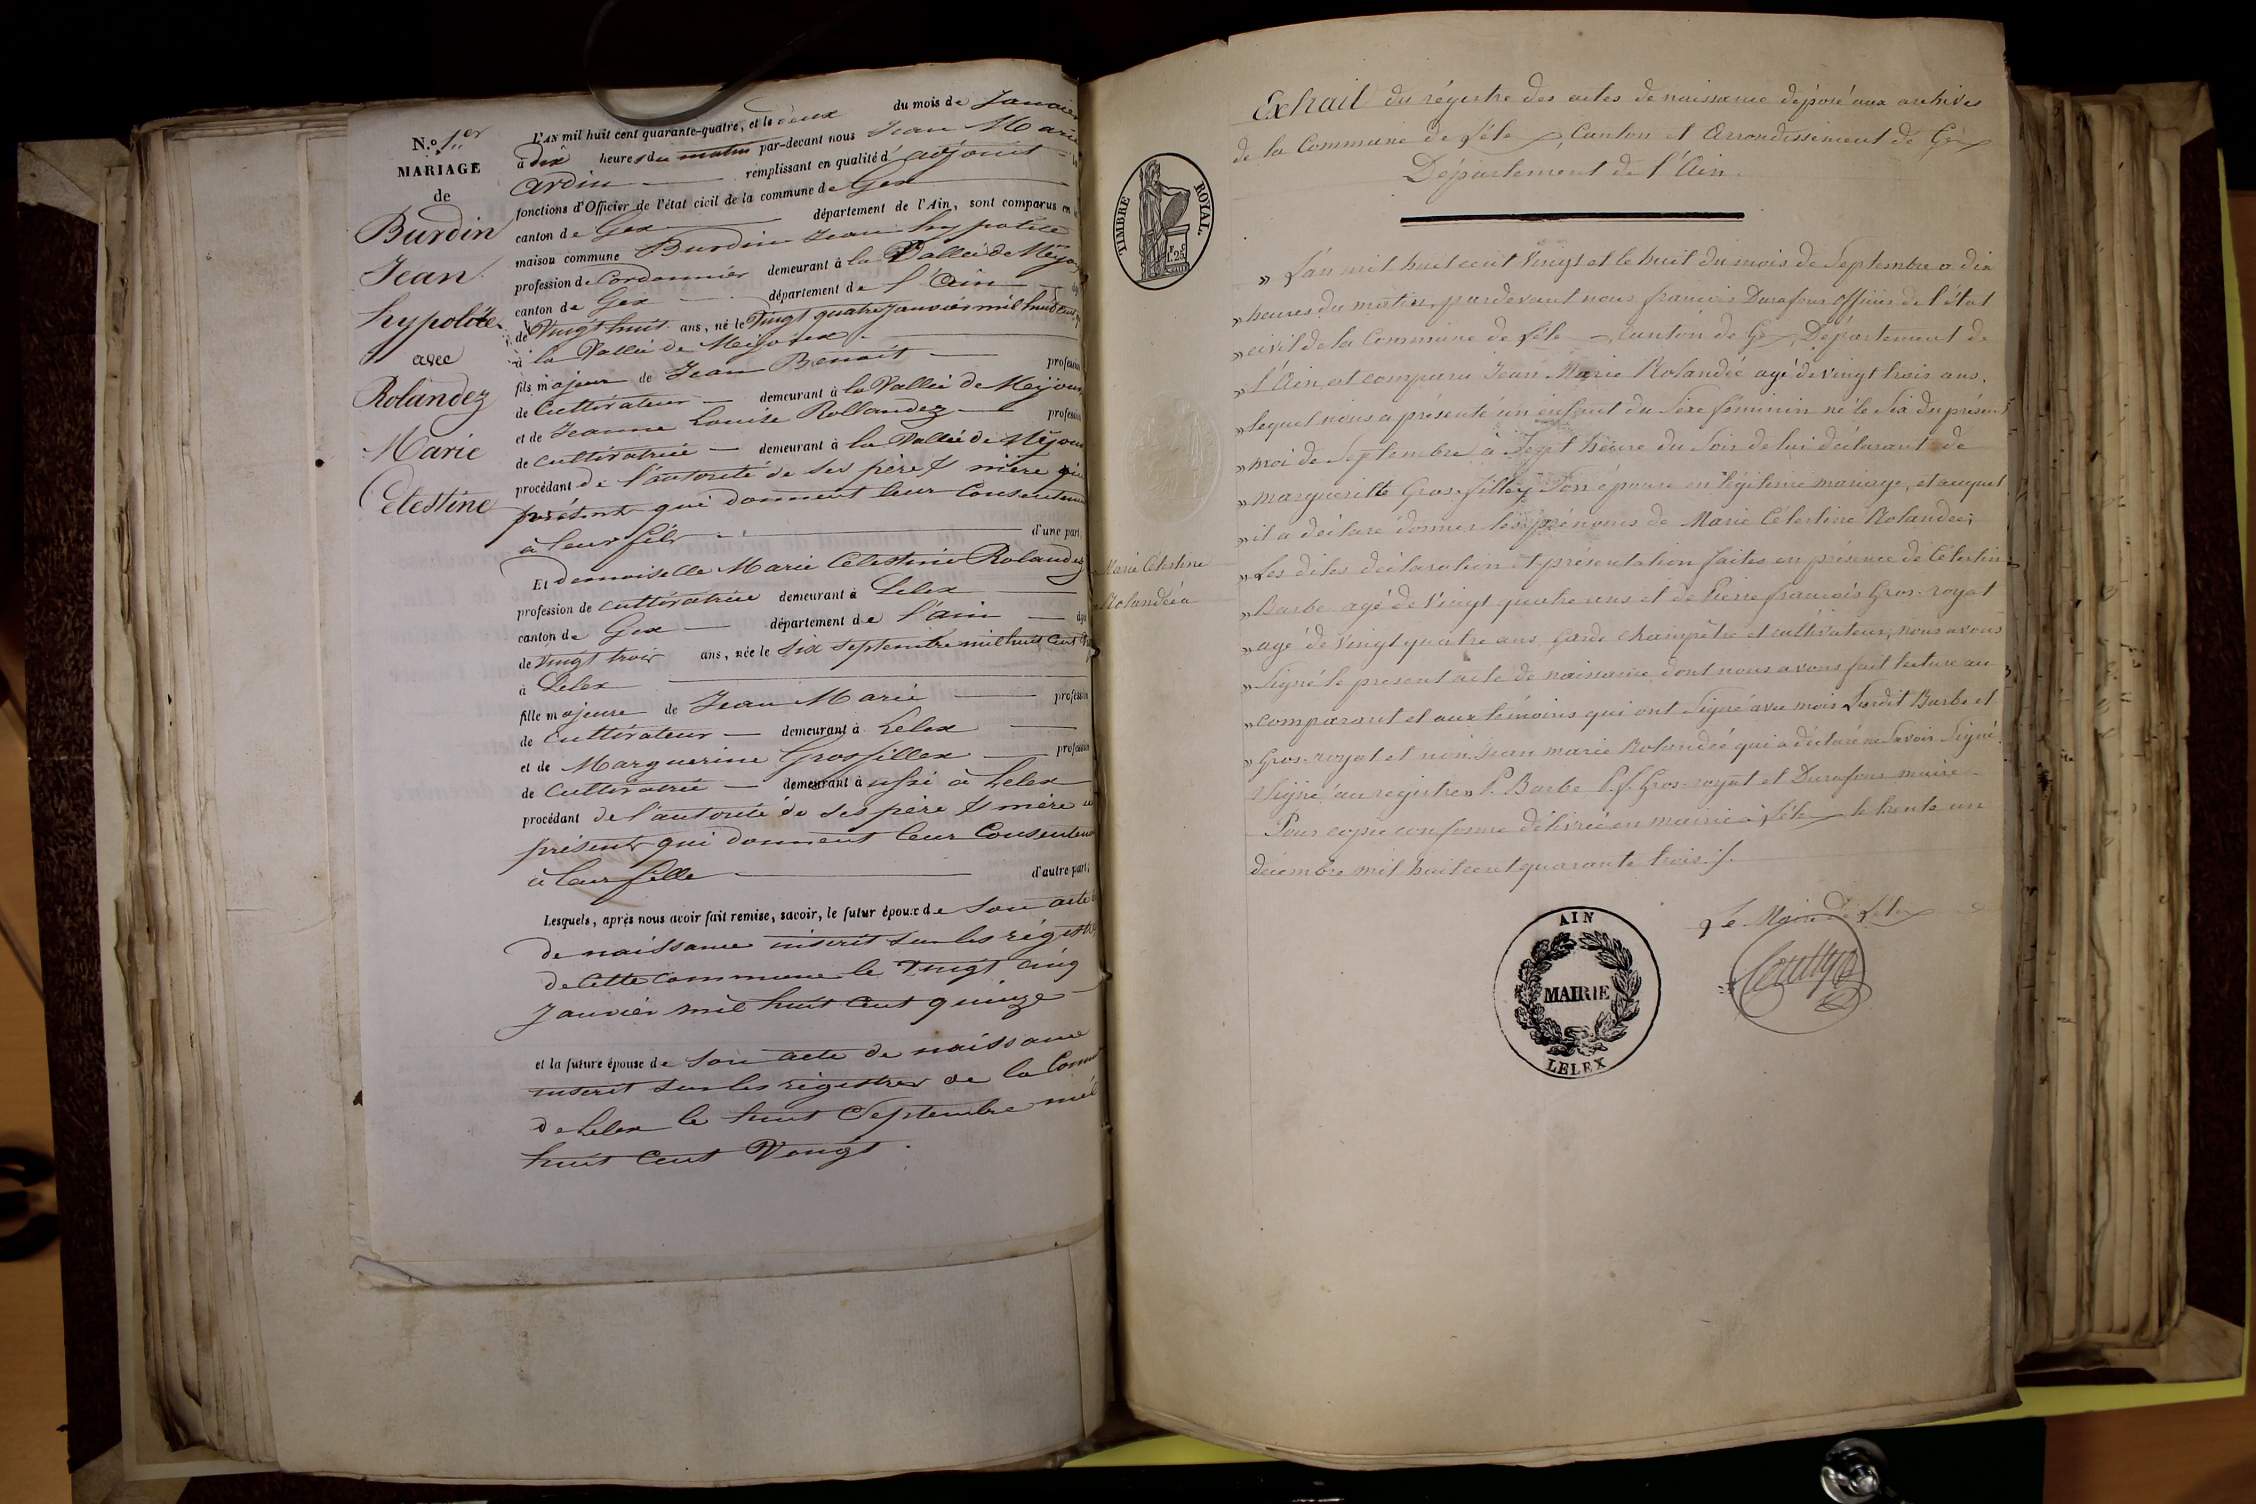 N.o 1er
MARIAGE
de
Burdin
Jean
hypolite
avec
Rolandez
Marie
Célestine
L'AN mil huit cent quarante-quatre, et le deux du mois de Janvier
à dix heures du matin par-devant nous Jean Marie
ardin remplissant en qualité d'adjoint
fonctions d'Officier de l'état civil de la commune de Gex
canton de Gex département de l'Ain, sont comparus en
maison commune Burdin Jean hypolite
profession de Cordonnier demeurant à la Vallée de Mijoux
canton de Gex département de l'Ain
de Vingt huit ans, né le Vingt quatre janvier mil huit cent
à la Vallée de Mijoux
fils majeur de Jean Benoit profession
de Cultivateur demeurant à la Vallée de Mijoux
et de Jeanne Louise Rollandez profession
de cultivatrice demeurant à la Vallée de Mijoux
procédant de l'autorité de ses père & mère ici
présents qui donnent leur Consentement
à leur fils d'une part,
Et demoiselle Marie Célestine Rolandez
profession de cultivatrice demeurant à Lelex
canton de Gex département de l'ain
de vingt trois ans, née le Six Septembre mil huit cent
à Lelex
fille majeure de Jean Marie profession
de Cultivateur demeurant à Lelex
et de Marguerine Grosfillex profession
de Cultivatrice demeurant à ussi à Lelex
procédant de l'autorité de ses père & mère ici
présents qui donnent leur Consentement
à leur fille d'autre part;
Lesquels, après nous avoir fait remise, savoir, le futur époux de son acte
de naissance inscrit sur les régistres
de Cette Commune le vingt cinq
Janvier mil huit Cent quinze
et la future épouse de son acte de naissance
inscrit sur les régistres de la Comm
de Lelex le huit Septembre mil
huit Cent Vingt.
Extrait du régistre des actes de naissance déposé aux archives
de la Commune de Lélex, Canton et Arrondissement de Gex
Département de l'Ain.
TIMBRE ROYAL.
1f. 25c
» L'an mil huit cent vingt et le huit du mois de Septembre a dix
» heures du matin, pardevant nous françois Durafour officier de l'état
» civil de la Commune de Lélex Canton de Gex, Département de
» l'Ain, est comparu Jean Marie Rolandéé agé de vingt trois ans,
» lequel nous a présenté un enfant du Sexe féminin né le Six du présent
» moi de Septembre à Sept heure du Soir de lui déclarant de
» margueritte Gros-filley Son épouse en légitime mariage, et auquel
» il a déclaré donner les prénoms de Marie Célestine Rolandéé;
» Les dites déclaration et présentation faites en présence de Célestin
» Barbe agé de vingt quatre ans et de Pierre francois Gros-royat
» agé de vingt quatre ans garde champêtre et cultivateur, nous avons
» Signé le present acte de naissance dont nous avons fait lecture au
» comparant et aux témoins qui ont Signé avec mois Surdit Barbe et
» Gros-royat et non Jean marie Rolandéé qui a déclaré ne Savoir Signé.
Signé au registre » C. Barbe P. f. Gros-royat et Durafour maire
Pour copie conforme délivrée en mairie à Lélex le trente un
décembre mil huit cent quarante trois ./.
Marie Célestine
Rolandéé
Le Maire de Lélex
AIN
MAIRIE
LELEX